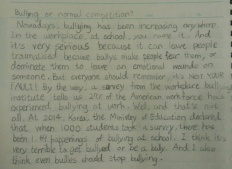 Bullying or normal competition?
Nowadays, bullying has been increasing anywhere.
In the workplace, at school, you name it. And
it's very serious because it can leave people
traumatised because bullys make people fear them, or
dominate them to leave an emotional wounds on
someone. But everyone should remember, it's not YOUR
FAULT! By the way, a survey from the workplace bully
institute tells us 27% of the American workforce have
experienced bullying at work. Well, and that's not
all. At 2014, Korea, the Ministry of Education declared
that when 1000 students take a survey, there had
been 1. happenings of bullying at school. I think it's
very terrible to get bullied or be a bully. And I also
think even bullies should stop bullying.